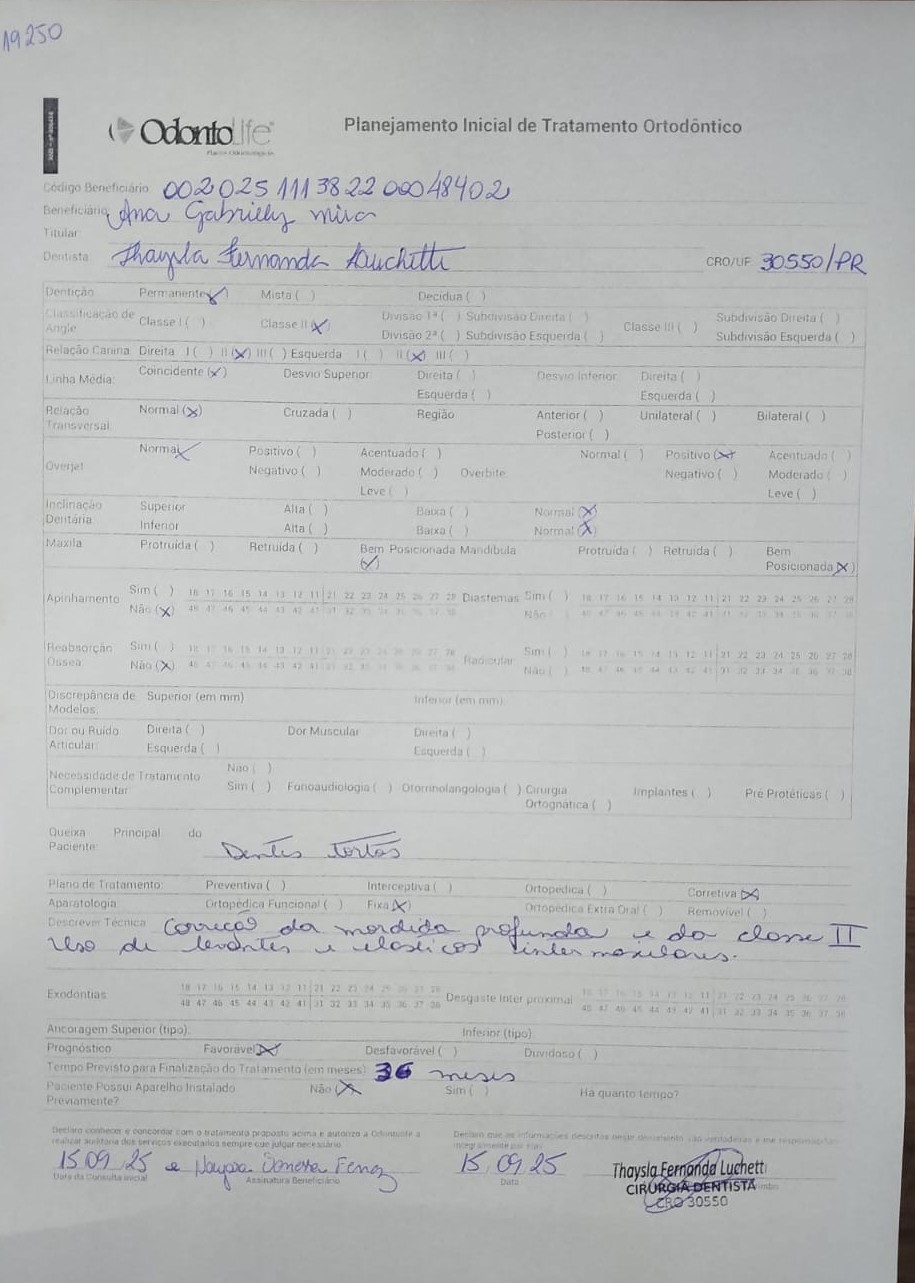 19250
OdontoLife
Planos Odontológicos
Planejamento Inicial de Tratamento Ortodôntico
Código Beneficiário: 002 025 111 38 22 000 48402
Beneficiário: Ana Gabrielly
Titular:
Dentista: Thaysla Fernanda Luchetti CRO/UF: 30550/PR
Dentição Permanente (x) Mista ( ) Decídua ( )
Classificação de Angle Classe I ( ) Classe II (x) Divisão 1ª ( ) Subdivisão Direita ( ) Classe III ( ) Subdivisão Direita ( )
Divisão 2ª ( ) Subdivisão Esquerda ( ) Subdivisão Esquerda ( )
Relação Canina: Direita I ( ) II (x) III ( ) Esquerda I ( ) II (x) III ( )
Linha Média: Coincidente (x) Desvio Superior Direita ( ) Desvio Inferior Direita ( )
Esquerda ( ) Esquerda ( )
Relação Transversal: Normal (x) Cruzada ( ) Região Anterior ( ) Unilateral ( ) Bilateral ( )
Posterior ( )
Overjet Normal x Positivo ( ) Acentuado ( ) Normal ( ) Positivo (x) Acentuado ( )
Negativo ( ) Moderado ( ) Overbite Negativo ( ) Moderado ( )
Leve ( ) Leve ( )
Inclinação Dentária: Superior Alta ( ) Baixa ( ) Normal (x)
Inferior Alta ( ) Baixa ( ) Normal (x)
Maxila Protruída ( ) Retruída ( ) Bem Posicionada (x) Mandíbula Protruída ( ) Retruída ( ) Bem Posicionada (x)
Apinhamento Sim ( ) 18 17 16 15 14 13 12 11 21 22 23 24 25 26 27 28 Diastemas Sim ( ) 18 17 16 15 14 13 12 11 21 22 23 24 25 26 27 28
Não (x) 48 47 46 45 44 43 42 41 31 32 33 34 35 36 37 38 Não ( ) 48 47 46 45 44 43 42 41 31 32 33 34 35 36 37 38
Reabsorção Óssea Sim ( ) 18 17 16 15 14 13 12 11 21 22 23 24 25 26 27 28 Radicular Sim ( ) 18 17 16 15 14 13 12 11 21 22 23 24 25 26 27 28
Não (x) 48 47 46 45 44 43 42 41 31 32 33 34 35 36 37 38 Não ( ) 48 47 46 45 44 43 42 41 31 32 33 34 35 36 37 38
Discrepância de Modelos: Superior (em mm) Inferior (em mm)
Dor ou Ruído Articular: Direita ( ) Dor Muscular Direita ( )
Esquerda ( ) Esquerda ( )
Necessidade de Tratamento Complementar: Não ( )
Sim ( ) Fonoaudiologia ( ) Otorrinolangologia ( ) Cirurgia Ortognática ( ) Implantes ( ) Pré Protéticas ( )
Queixa Principal do Paciente: Dentes tortos
Plano de Tratamento: Preventiva ( ) Interceptiva ( ) Ortopédica ( ) Corretiva (x)
Aparatologia Ortopédica Funcional ( ) Fixa (x) Ortopédica Extra Oral ( ) Removível ( )
Descrever Técnica: Correção da mordida profunda e da classe II
Uso de levantes e elasticos intermaxilares.
Exodontias 18 17 16 15 14 13 12 11 21 22 23 24 25 26 27 28 Desgaste Inter proximal 18 17 16 15 14 13 12 11 21 22 23 24 25 26 27 28
48 47 46 45 44 43 42 41 31 32 33 34 35 36 37 38 48 47 46 45 44 43 42 41 31 32 33 34 35 36 37 38
Ancoragem Superior (tipo): Inferior (tipo):
Prognóstico Favorável (x) Desfavorável ( ) Duvidoso ( )
Tempo Previsto para Finalização do Tratamento (em meses): 36 meses
Paciente Possui Aparelho Instalado Previamente? Não (x) Sim ( ) Há quanto tempo?
Declaro conhecer e concordar com o tratamento proposto acima e autorizo a Odontolife a realizar auditoria dos serviços executados sempre que julgar necessário
Declaro que as informações descritas neste documento são verdadeiras e me responsabilizo integralmente por elas
15 09 25 15 09 25 Thaysla Fernanda Luchetti
Data da Consulta Inicial Assinatura Beneficiário Data CIRURGIÃ DENTISTA
CRO 30550